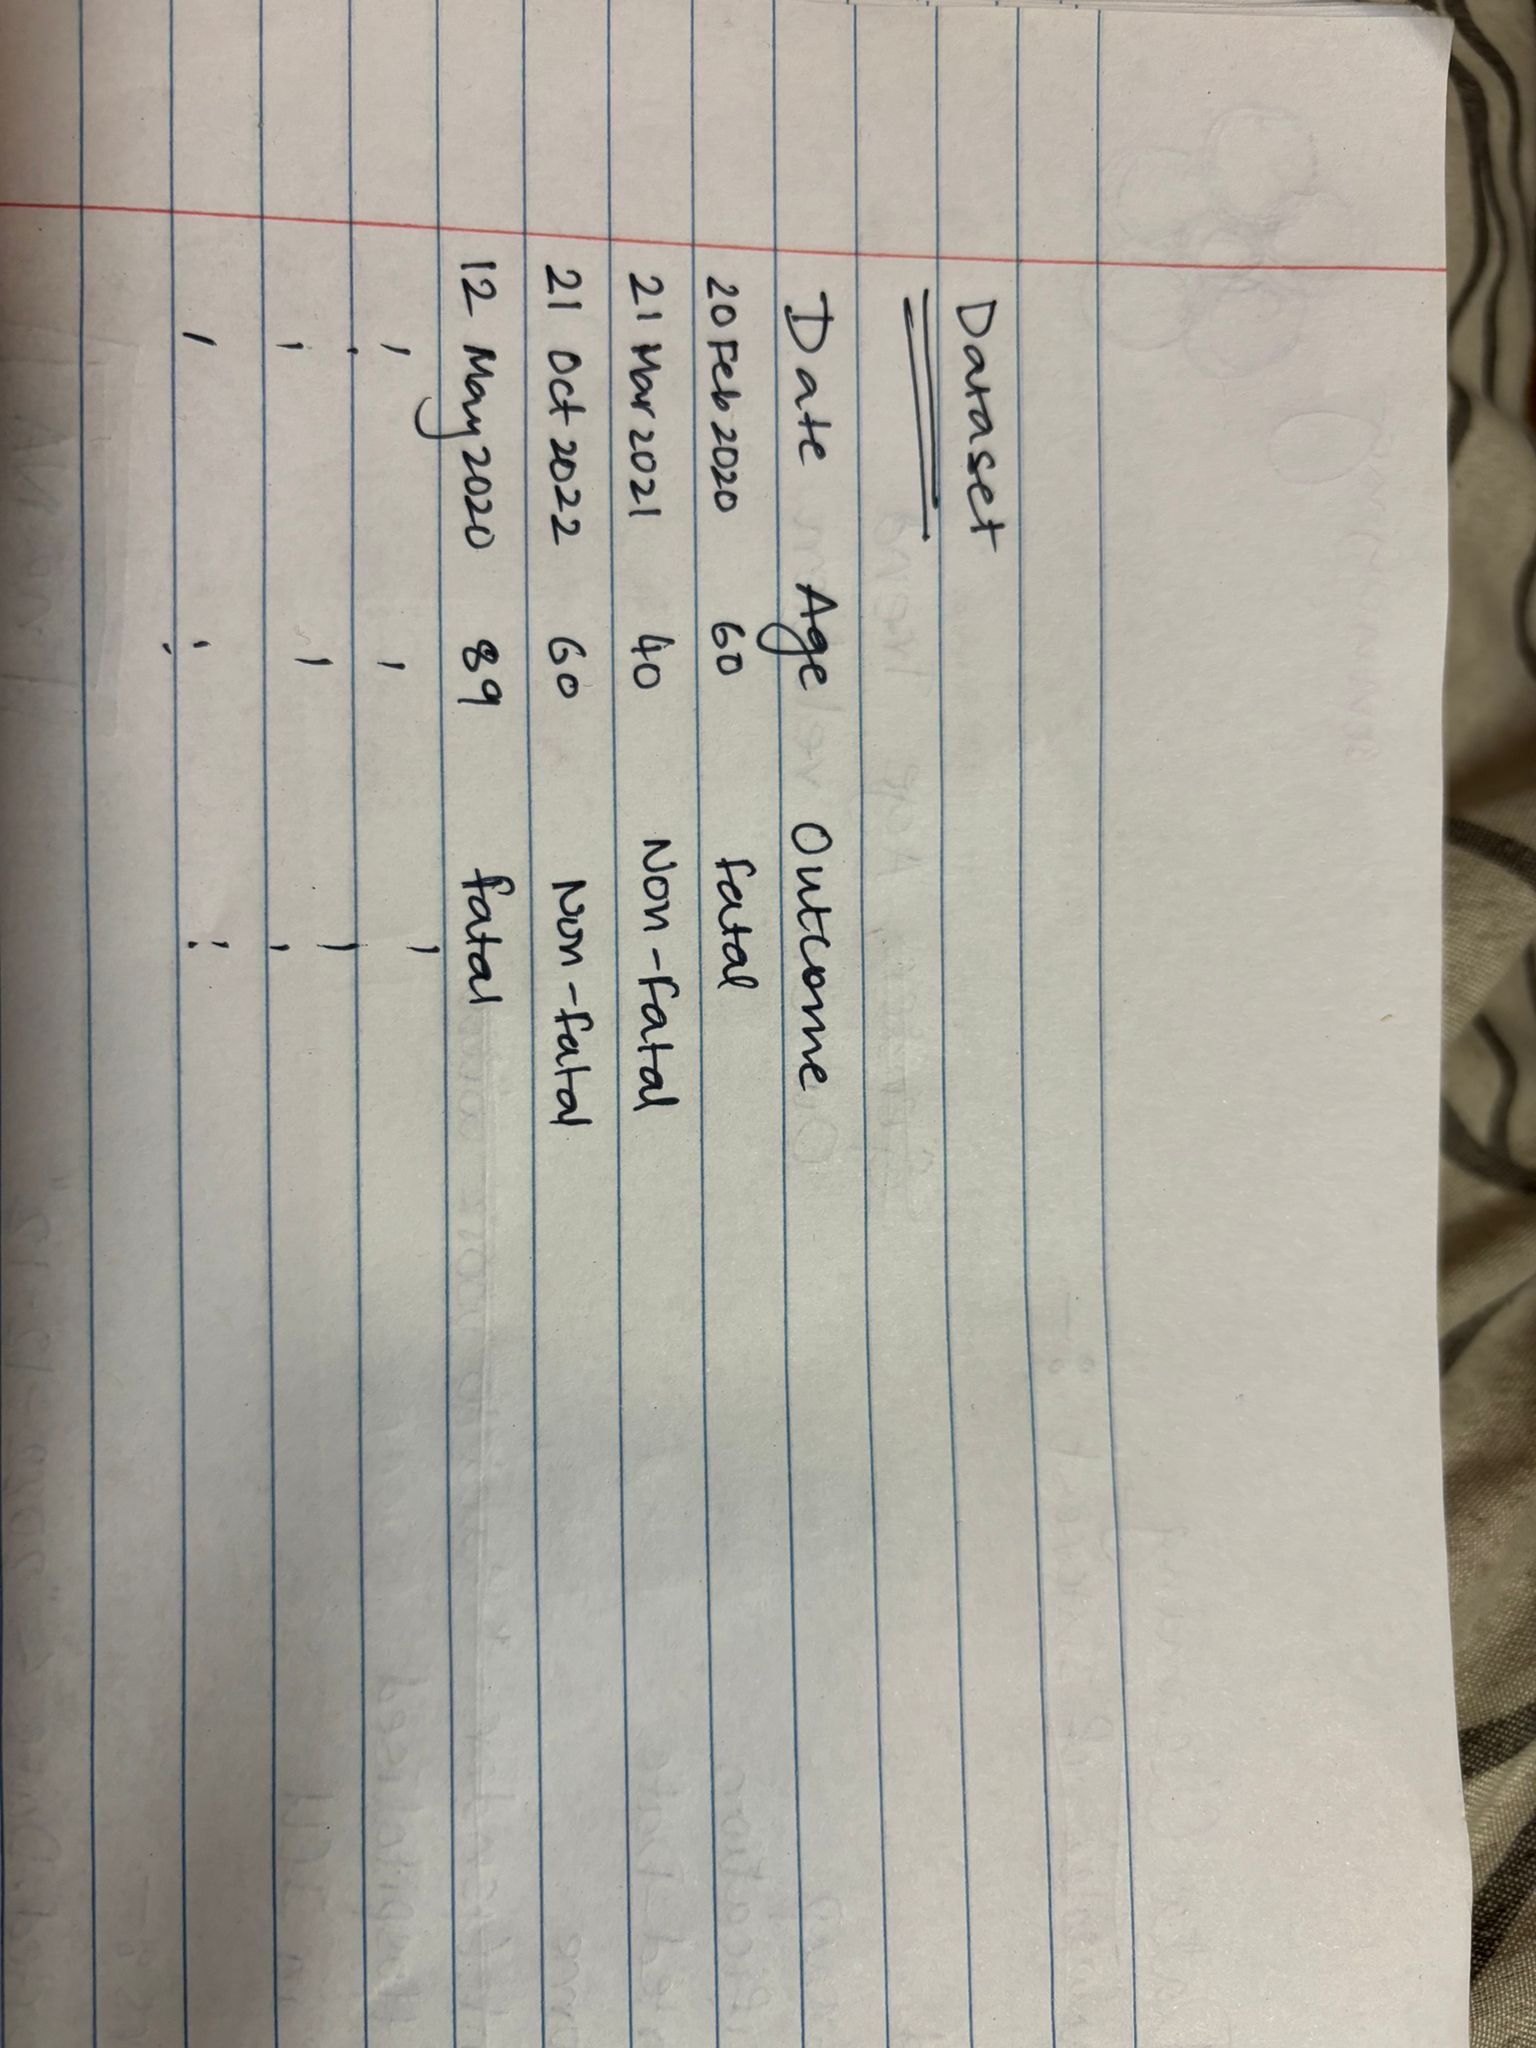 Dataset
Date Age Outcome
20 Feb 2020 60 fatal
21 Mar 2021 40 Non-fatal
21 Oct 2022 60 Non-fatal
12 May 2020 89 fatal